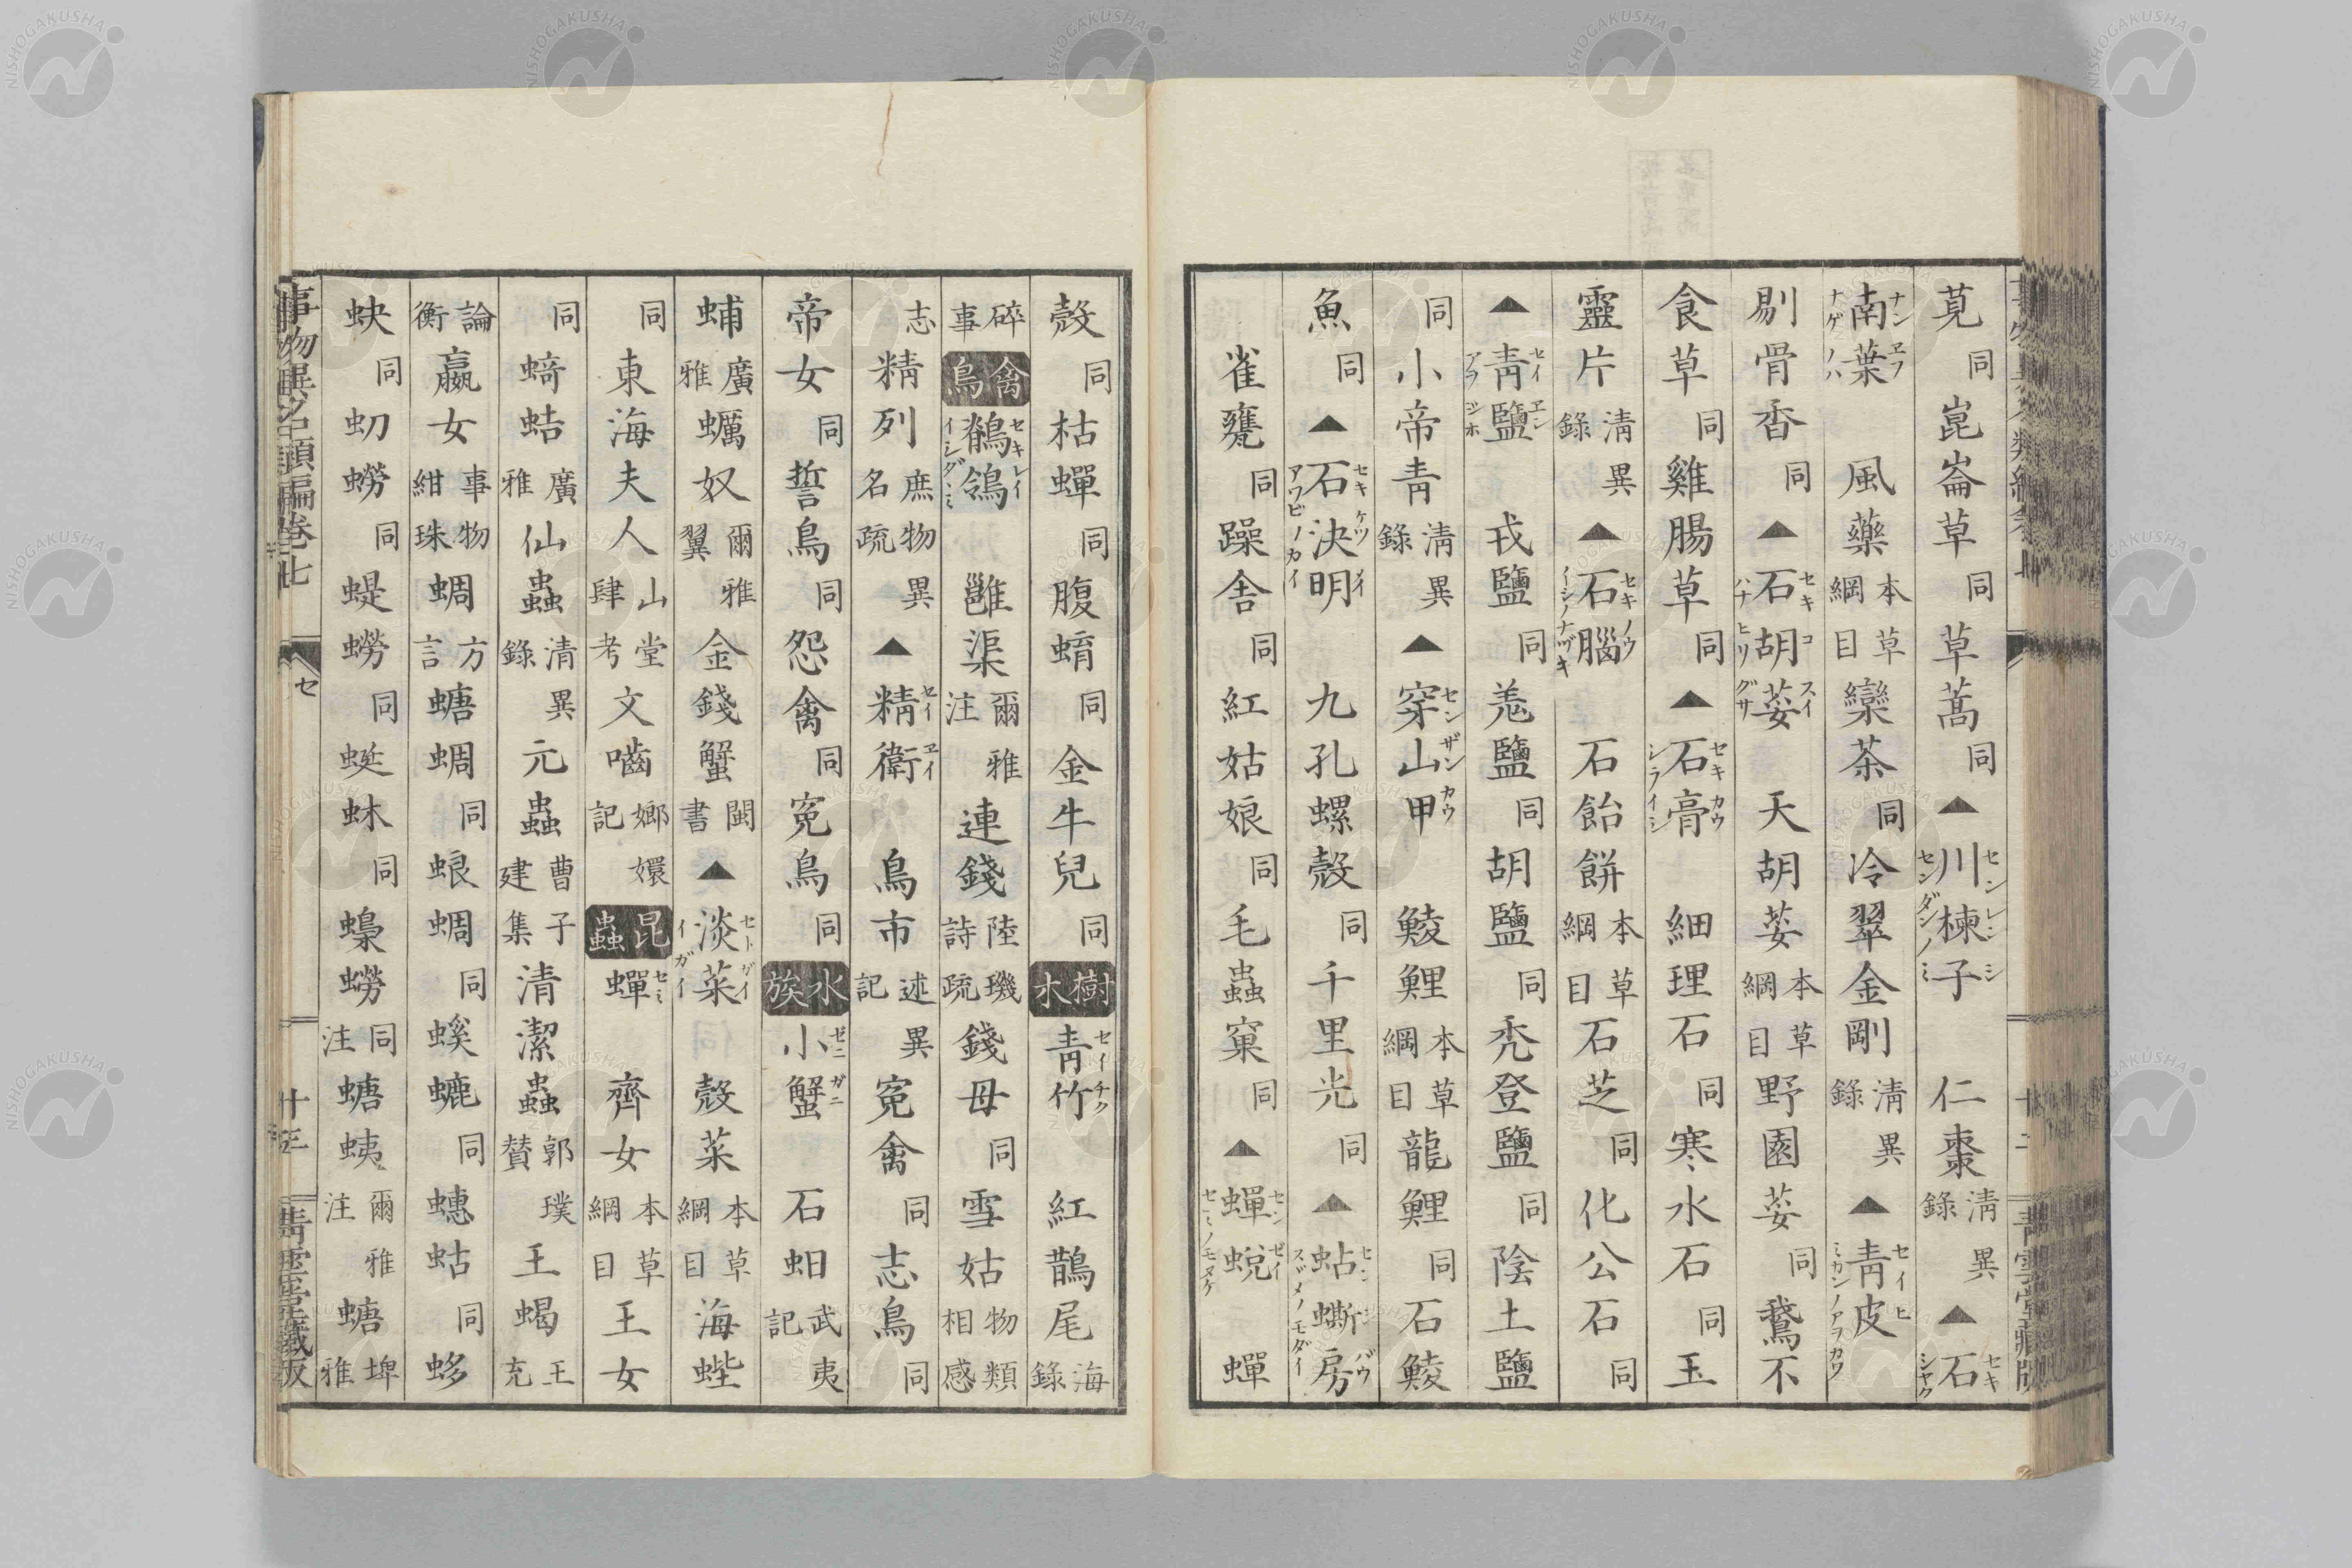 莧同崑崙草同草蒿同▲川楝子センレンシセンダンノミ仁棗清異錄▲石セキシヤク
南葉ナンヱフナゲノハ風藥本草綱目欒荼同冷翠金剛清異錄▲青皮セイヒミカンノアヲカワ
剔骨香同▲石胡荽セキコスイハナヒリグサ天胡荽本草綱目野園荽同鵞不
食草同雞腸草同▲石膏セキカウシライシ細理石同寒水石同玉
靈片清異錄▲石腦セキノウイシノナヅキ石飴餅本草綱目石芝同化公石同
▲青鹽セイヱンアヲジホ戎鹽同羗鹽同胡鹽同禿登鹽同陰土鹽
同小帝青清異錄▲穿山甲センザンカウ鯪鯉本草綱目龍鯉同石鯪
魚同▲石決明セキケツメイアワビノカイ九孔螺殼同千里光同▲蛅蟖房センシバウスヾメノモダイ
雀甕同躁舍同紅姑娘同毛蟲窠同▲蟬蛻センゼイセミノモヌケ蟬
殼同枯蟬同腹蜟同金牛兒同樹木青竹セイチク紅鵲尾海錄
碎事禽鳥鶺鴒セキレイイシダヽミ雝渠爾雅注連錢陸璣詩疏錢母同雪姑物類相感
志精列庶物異名疏▲精衛セイヱイ鳥市述異記寃禽同志鳥同
帝女同誓鳥同怨禽同寃鳥同水族小蟹ゼニガニ石蚎武夷記
蜅廣雅蠣奴爾雅翼金錢蟹閩書▲淡菜セトガイイガイ殼菜本草綱目海蜌
同東海夫人山堂肆考文嚙嫏嬛記昆蟲蟬セミ齊女本草綱目王女
同蜻蛣廣雅仙蟲清異錄元蟲曹子建集清潔蟲郭璞贊王蝎王充
論衡嬴女事物紺珠蜩方言螗蜩同蜋蜩同螇螰同蟪蛄同蛥
蚗同虭蟧同蝭蟧同蜓蚞同蟂蟧同注螗蛦爾雅注螗埤雅
事物異名類編卷七
セ
十三
青雲堂藏版